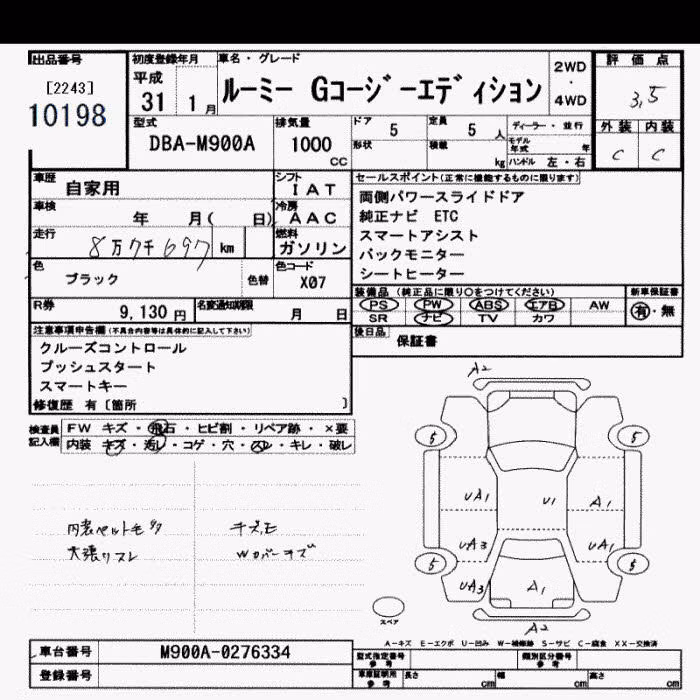 出品番号
[2243]
10198
初度登録年月
平成
31 1 月
車名・グレード
ルーミー Gコージーエディション
2WD
・
4WD
評価点
3,5
外装 内装
C C
型式
DBA-M900A
排気量
1000
CC
ドア
5
定員
5 人
ディーラー・並行
モデル年式 年
形状
積載
kg
ハンドル 左・右
車歴
自家用
シフト
IAT
車検
年 月( 日)
冷房
AAC
走行
8万7千697 km
燃料
ガソリン
色
ブラック
色替
色コード
X07
R券
9,130 円
名変通知期限
月 日
セールスポイント(正常に機能するものに限ります)
両側パワースライドドア
純正ナビ ETC
スマートアシスト
バックモニター
シートヒーター
装備品(純正品に限り○をつけてください)
新車保証書
PS PW ABS エアB AW
SR ナビ TV カワ
有・無
後日品
保証書
注意事項申告欄(不具合内容等は具体的に記入して下さい)
クルーズコントロール
プッシュスタート
スマートキー
修復歴 有〔箇所 〕
検査員
記入欄
FW キズ・飛石・ヒビ割・リペア跡・×要
内装 キズ・汚レ・コゲ・穴・スレ・キレ・破レ
天張リスレ
Wカバーキズ
A2
5 5
UA1 U1 A1
UA3 UA1
5 5
UA3 A1
スペア
A2
A-キズ E-エクボ U-凹み W-補修跡 S-サビ C-腐食 XX-交換済
車台番号
M900A-0276334
登録番号
型式指定番号
参考
類別区分番号
参考
車庫証明用
参考
長さ cm
幅 cm
高さ cm